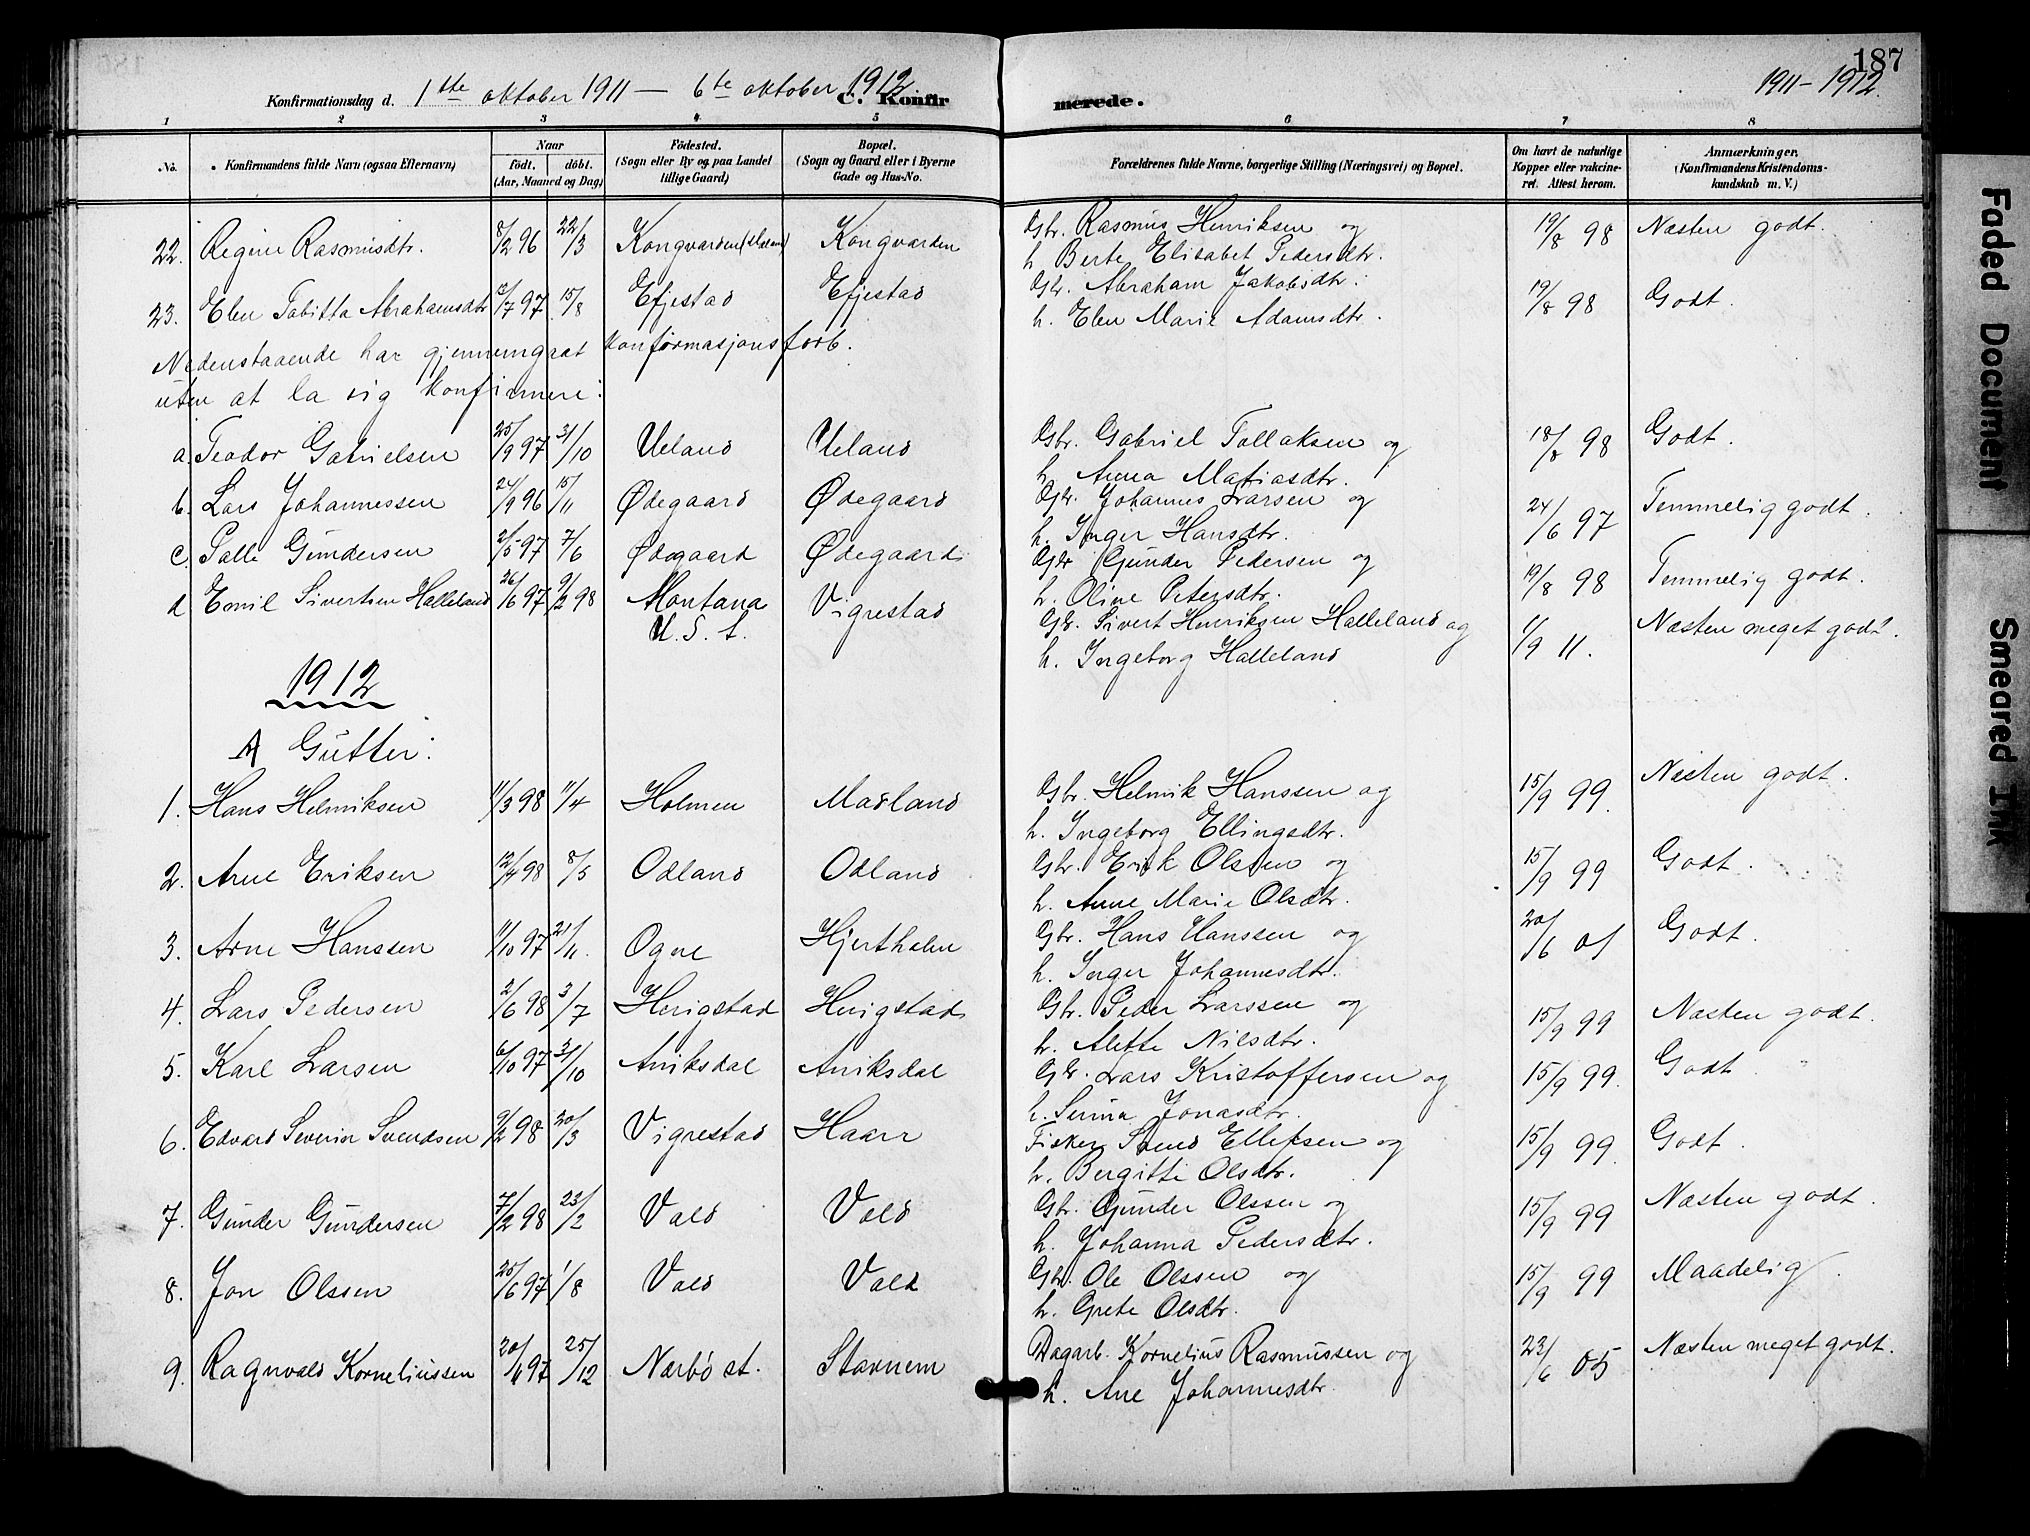 187
Konfirmationsdag d. 1ste oktober 1911 — 6te oktober 1912. C. Konfir merede. 1911-1912.
1 2 3 4 5 6 7 8
No. Konfirmandens fulde Navn (ogsaa Efternavn) Naar født. døbt. (Aar, Maaned og Dag) Fødested. (Sogn eller By og paa Landet tillige Gaard) Bopæl. (Sogn og Gaard eller i Byerne Gade og Hus-No. Forældrenes fulde Navne, borgerlige Stilling (Næringsvei) og Bopæl. Om havt de naturlige Kopper eller vakcineret. Attest herom. Anmærkninger. (Konfirmandens Kristendomskundskab m. V.)
22. Regine Rasmusdtr. 8/2 96 22/3 Kongvarden Kongvarden Gbr. Rasmus Henriksen og 19/8 98 Næsten godt.
h. Berte Elisabet Pedersdtr.
23. Elen Tabitta Abrahamsdtr /7 97 15/8 Efjestad Efjestad Gbr. Abraham Jakobsdtr. 19/8 98 Godt.
h. Elen Marie Adamsdtr.
Nedenstaaende har gjennemgaat konfirmasjonsforb.
uten at la sig konfirmere:
a. Teodor Gabrielsen 25/9 97 31/10 Ueland Ueland Gbr. Gabriel Tollaksen og 18/8 98 Godt.
h. Anna Matiasdtr.
b. Lars Johannessen 24/9 96 15/11 Ødegaard Ødegaard Gbr. Johannes Larsen og 24/6 97 Temmelig godt.
h. Inger Hansdtr.
c. Palle Gundersen 2/5 97 7/6 Ødegaard Ødegaard Gbr Gunder Pedersen og 19/8 98 Temmelig godt.
h. Oline Petersdtr.
d Emil Sivertsen Halleland 26/6 97 9/2 98 Montana Vigrestad Gbr. Sivert Henriksen Halleland og 1/9 11. Næsten meget godt.
U. S. h. Ingeborg Halleland
1912
A Gutter:
1. Hans Helmiksen 11/3 98 11/4 Holmen Madland Gbr. Helmik Hanssen og 15/9 99. Næsten godt.
h. Ingeborg Ellingsdtr.
2. Arne Eriksen 12/4 98 8/5 Odland Odland Gbr. Erik Olssen og 15/9 99 Godt.
h. Anne Marie Olsdtr.
3. Arne Hanssen 11/10 97 21/11. Ogne Hjertholen Gbr. Hans Hanssen og 20/6 01 Godt.
h. Inger Johannesdtr.
4. Lars Pedersen 2/6 98 3/7 Herigstad Herigstad Gbr. Peder Larssen og 15/9 99 Næsten godt.
h. Alette Nilsdtr.
5. Karl Larsen 6/10 97 31/10 Aniksdal Aniksdal Gbr. Lars Kristoffersen og 15/9 99. Godt.
h. Serina Jonasdtr.
6. Edvard Severin Svendsen 9/2 98 20/3 Vigrestad Haarr Fisker Svend Ellefsen og 15/9 99. Godt.
h. Bergitte Olsdtr.
7. Gunder Gundersen 7/2 98 23/2 Vold Vold Gbr. Gunder Olssen og 15/9 99 Næsten godt.
h. Johanna Pedersdtr.
8. Jon Olssen 25/6 97 1/8 Vold Vold Gbr. Ole Olssen og 15/9 99 Maadelig.
h. Grete Olsdtr.
9. Ragnvald Korneliussen 20/ 97 25/12 Nærbø st. Stavnem Dagarb. Kornelius Rasmussen og 23/6 05 Næsten meget godt.
h. Ane Johannesdtr.
Faded Document
Smeared Ink